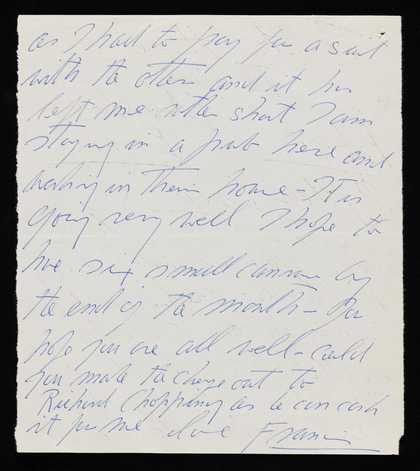 as I had to pay for a suit
with the other and it has
left me rather short I am
staying in a pub here and
working in their house – It is
going very well I hope to
have six small canvases by
the end of the month –
hope you are all well – could
you make the cheque out to
Richard Chopping as he can cash
it for me love Francis